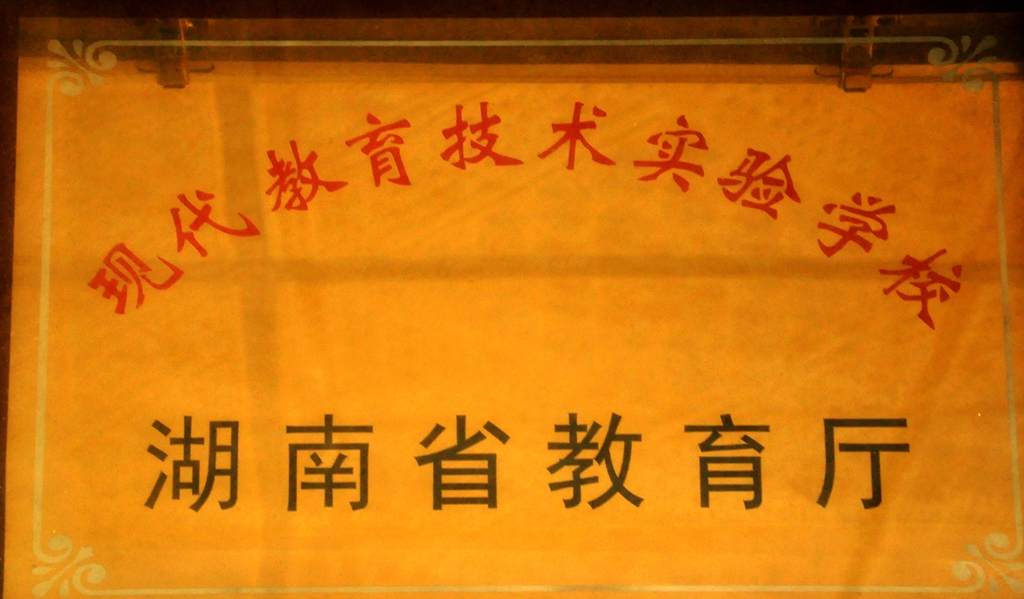 现代教育技术实验学校
湖南省教育厅